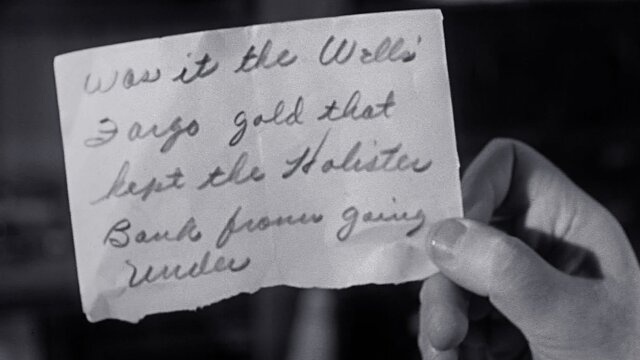 Was it the Wells'
Fargo gold that
kept the Holister
Bank from going
under